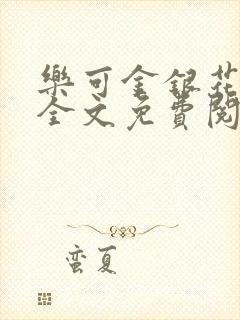 樂可金銀花
全文免費閱
蛮夏